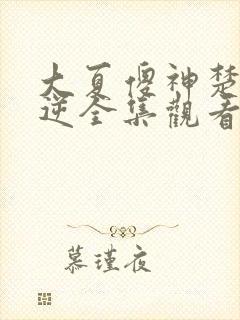 大夏傻神楚
逆全集觀看
慕瑾夜